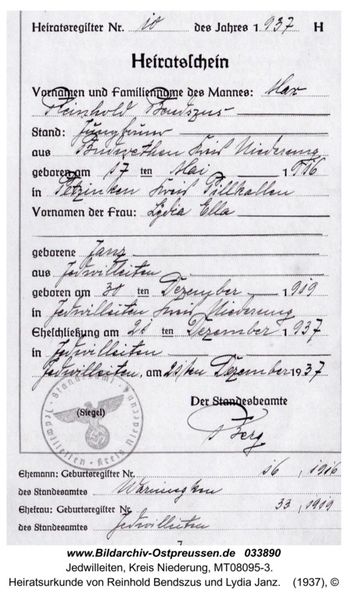 Heiratsregister Nr. 10 des Jahres 1937 H
Heiratsschein
Vornamen und Familienname des Mannes: Max
Reinhold Bendszus
Stand: Jungbauer
aus Budwethen Kreis Niederung
geboren am 17 ten Mai 1916
in Petzinken Kreis Pillkallen
Vornamen der Frau: Lydia Ella
geborene Janz
aus Jedwilleiten
geboren am 30 ten Dezember 1909
in Jedwilleiten Kreis Niederung
Eheschließung am 28 ten Dezember 1937
in Jedwilleiten
Jedwilleiten, am 28ten Dezember 1937
(Siegel) Der Standesbeamte
Berg
Ehemann: Geburtsregister Nr. 16, 1916
des Standesamtes
Ehefrau: Geburtsregister Nr. 33, 1909
des Standesamtes Jedwilleiten
www.Bildarchiv-Ostpreussen.de 033890
Jedwilleiten, Kreis Niederung, MT08095-3.
Heiratsurkunde von Reinhold Bendszus und Lydia Janz. (1937), ©